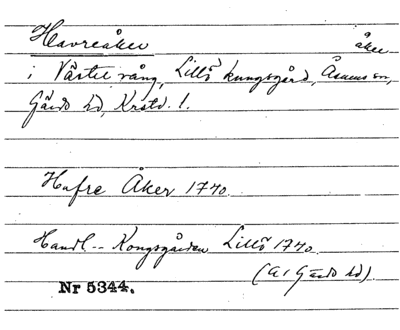 Havreåker åker
i Västre vång, Lillö kungsgård, Åsums sn,
Gärds hd, Krstd. l.
Hafre Åker 1770.
Handl -- Kongsgården Lillö 1770.
(A 1 Gärds hd)
Nr 5344.